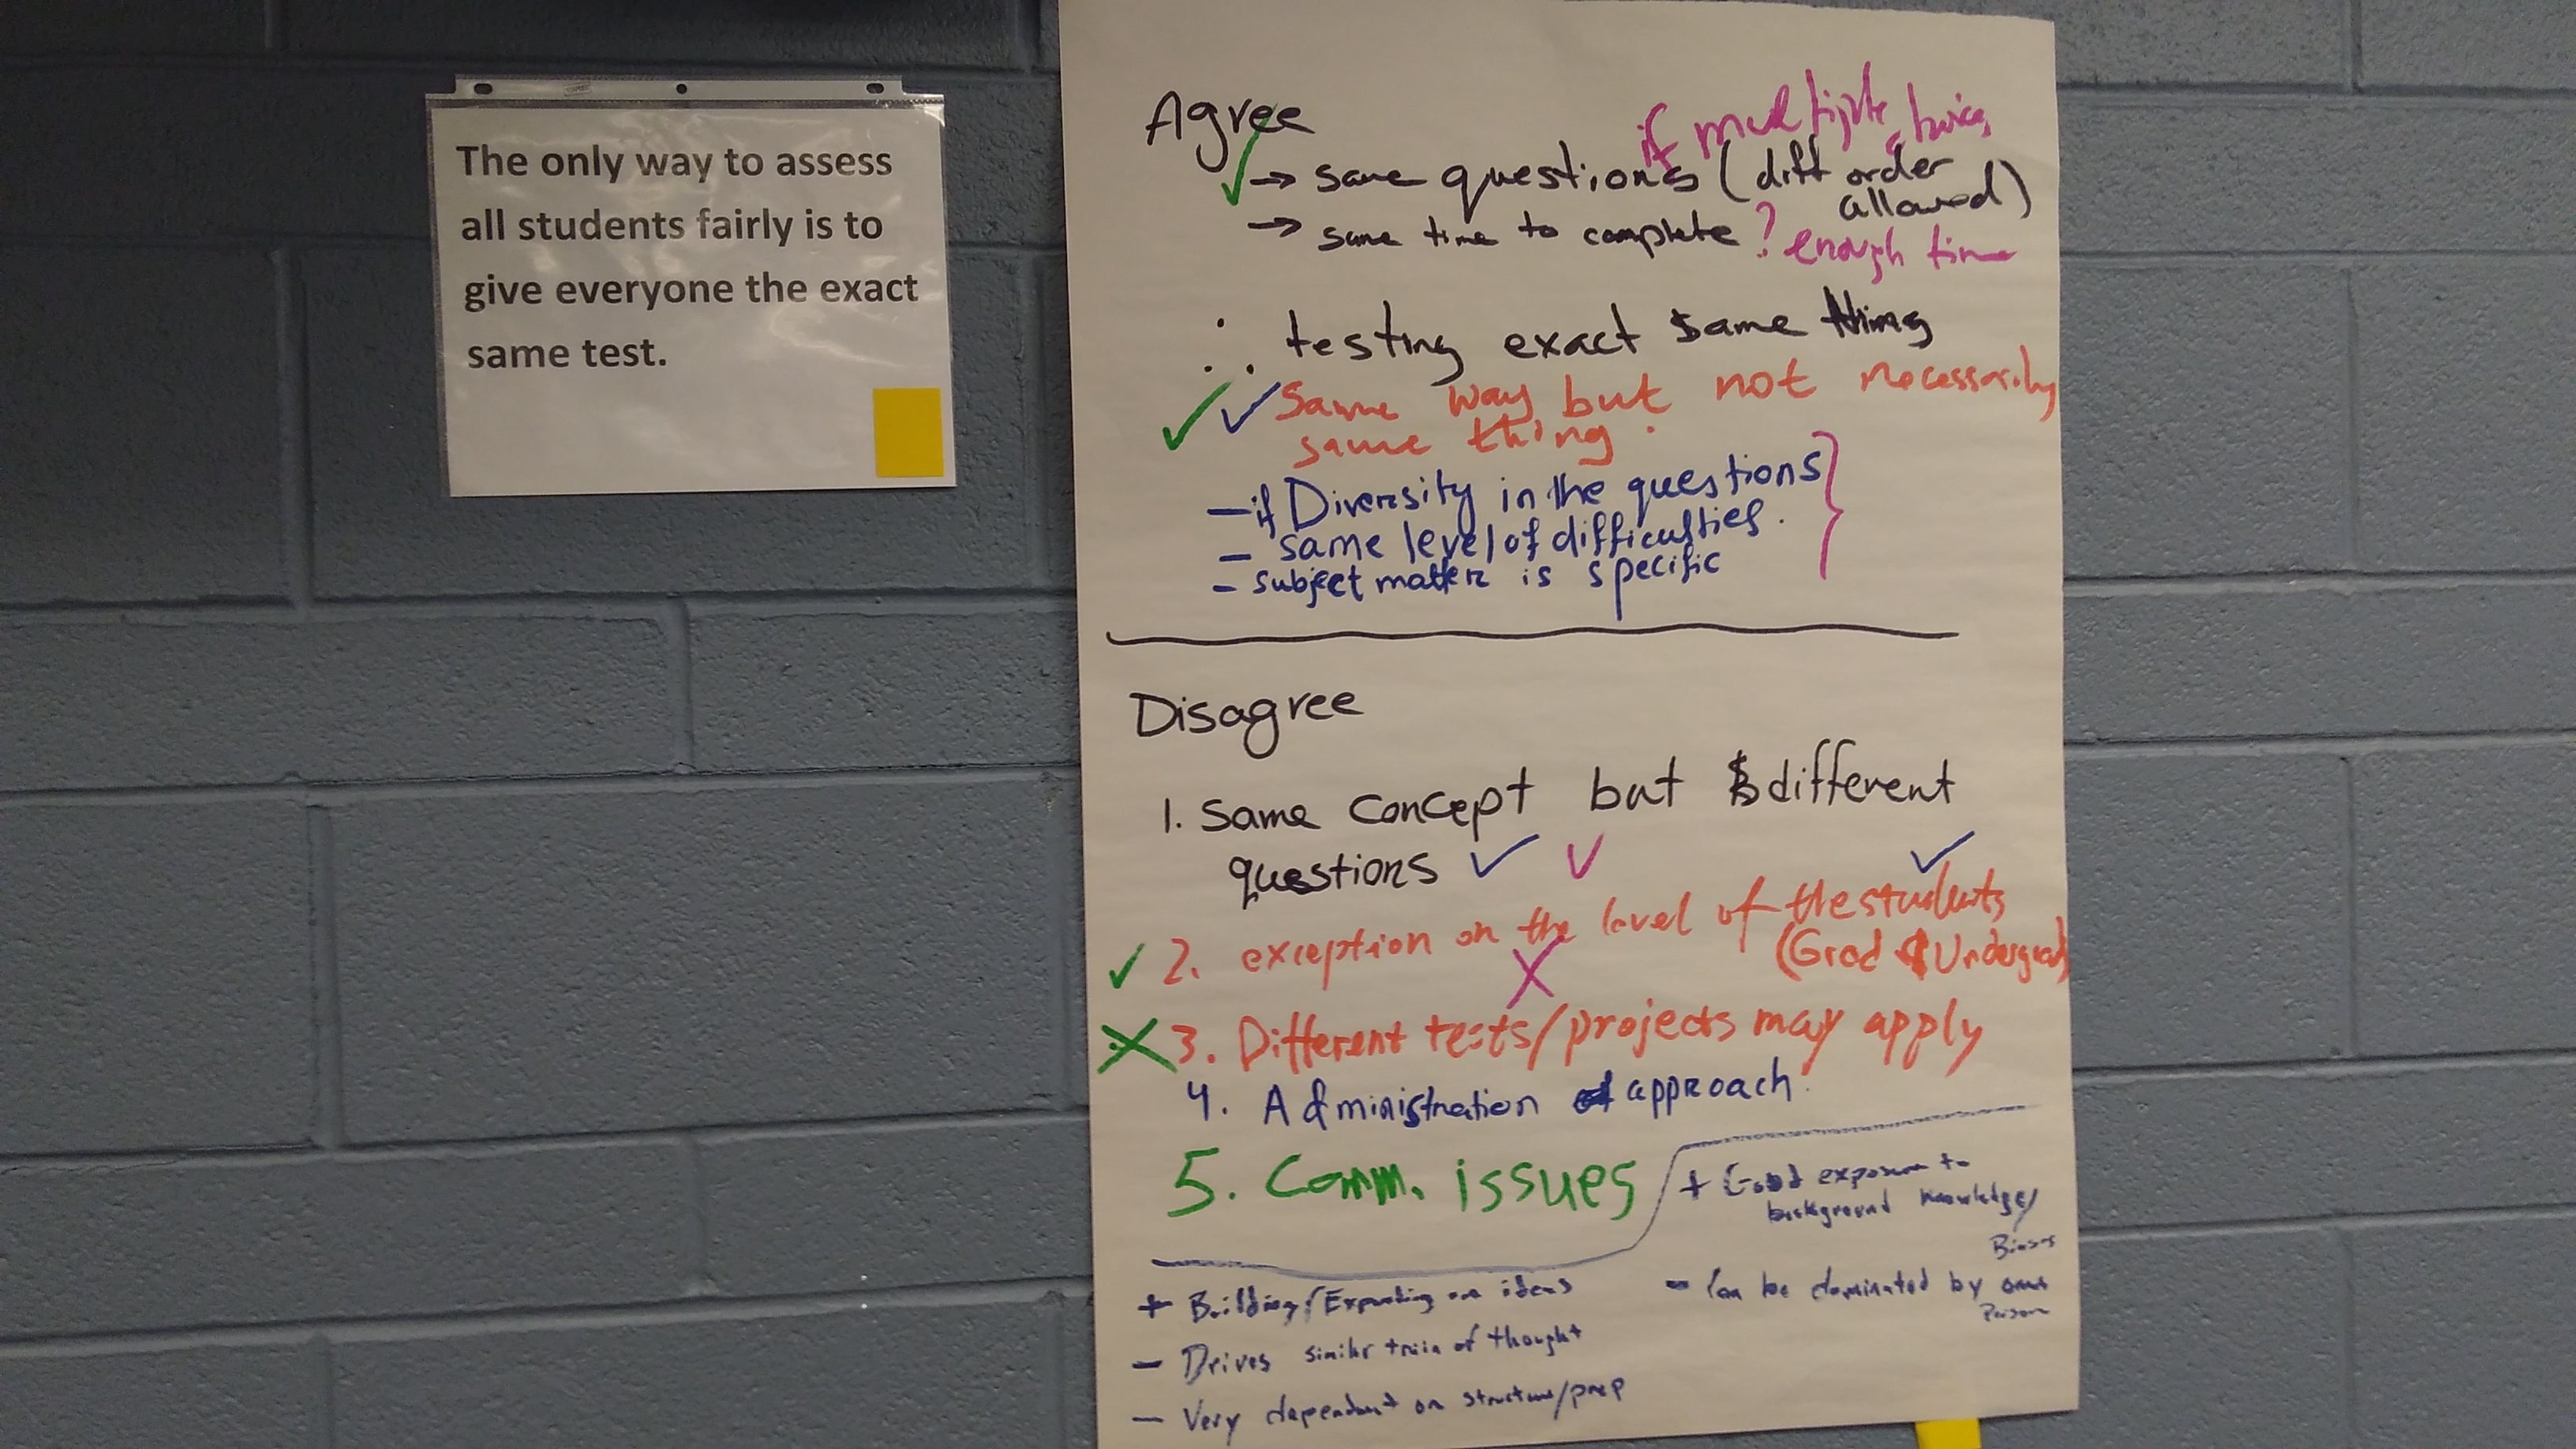 The only way to assess
all students fairly is to
give everyone the exact
same test.
Agree
if multiple choice
→ same questions (diff order
allowed)
→ same time to complete ? enough time
∴ testing exact same thing
same way but not necessarily
same thing.
- if Diversity in the questions
- same level of difficulties.
- subject matter is specific
Disagree
1. Same concept but different
questions
2. exception on the level of the students
(Grad & Undergrad)
3. Different tests/projects may apply
4. Administration approach.
5. Comm. issues
+ Good exposure to
background knowledge/
Biases
- Can be dominated by one
Person
+ Building/Expanding on ideas
- Drives similar train of thought
- Very dependent on structure/prep